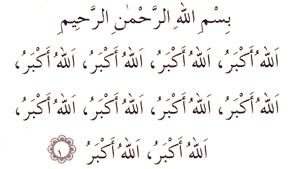 بِسْمِ اللهِ الرَّحْمٰنِ الرَّحِيْمِ
اَللهُ أَكْبَرُ، اَللهُ أَكْبَرُ، اَللهُ أَكْبَرُ، اَللهُ أَكْبَرُ،
اَللهُ أَكْبَرُ، اَللهُ أَكْبَرُ، اَللهُ أَكْبَرُ، اَللهُ أَكْبَرُ،
اَللهُ أَكْبَرُ، اَللهُ أَكْبَرُ ١